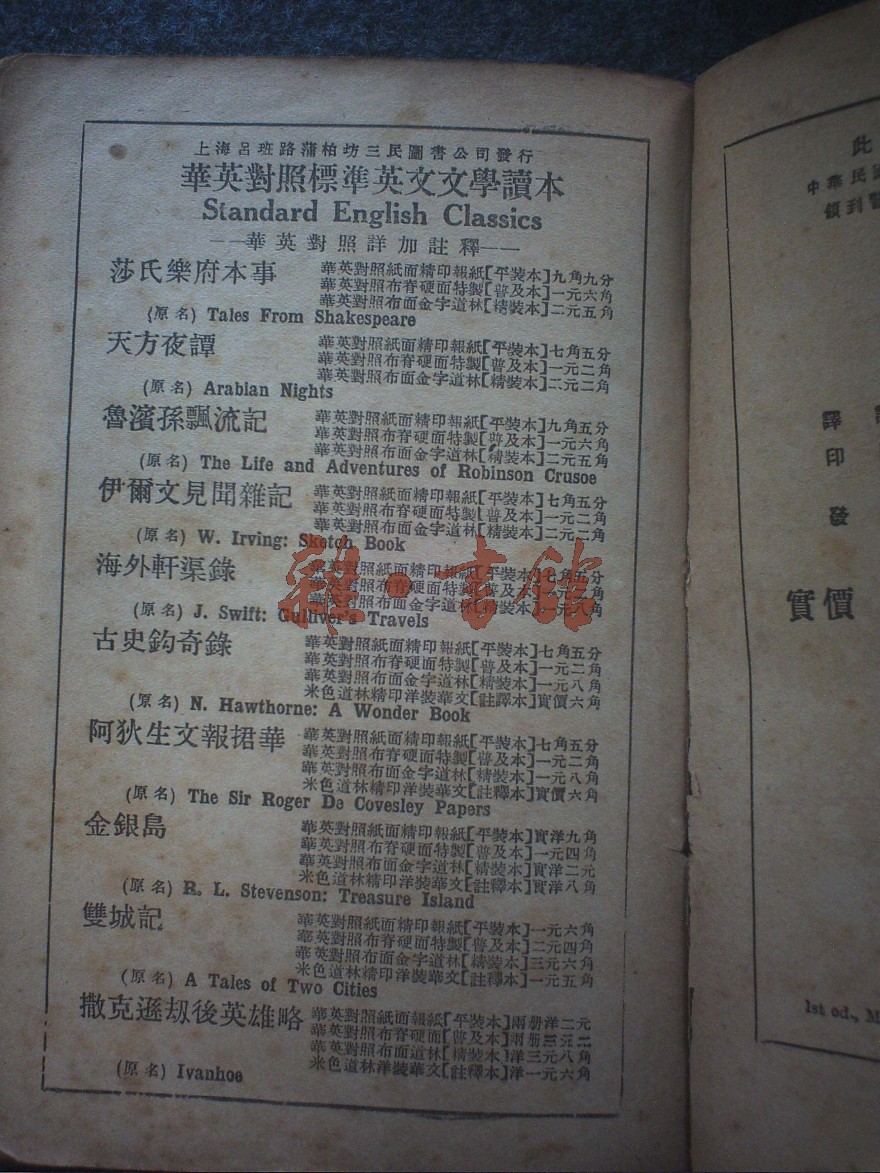 上海呂班路蒲柏坊三民圖書公司發行
華英對照標準英文文學讀本
Standard English Classics
——華英對照詳加註釋——
莎氏樂府本事
華英對照紙面精印報紙[平裝本]九角九分
華英對照布脊硬面特製[普及本]一元六角
華英對照布面金字道林[精裝本]二元五角
(原名) Tales From Shakespeare
天方夜譚
華英對照紙面精印報紙[平裝本]七角五分
華英對照布脊硬面特製[普及本]一元二角
華英對照布面金字道林[精裝本]二元二角
(原名) Arabian Nights
魯濱孫飄流記
華英對照紙面精印報紙[平裝本]九角五分
華英對照布脊硬面特製[普及本]一元六角
華英對照布面金字道林[精裝本]二元五角
(原名) The Life and Adventures of Robinson Crusoe
伊爾文見聞雜記
華英對照紙面精印報紙[平裝本]七角五分
華英對照布脊硬面特製[普及本]一元二角
華英對照布面金字道林[精裝本]二元二角
(原名) W. Irving: Sketch Book
海外軒渠錄
華英對照紙面精印報紙[平裝本]七角五分
華英對照布脊硬面特製[普及本]一元二角
華英對照布面金字道林[精裝本]一元八角
(原名) J. Swift: Gulliver's Travels
古史鈎奇錄
華英對照紙面精印報紙[平裝本]七角五分
華英對照布脊硬面特製[普及本]一元二角
華英對照布面金字道林[精裝本]一元八角
米色道林精印洋裝華文[註譯本]實價六角
(原名) N. Hawthorne: A Wonder Book
阿狄生文報捃華
華英對照紙面精印報紙[平裝本]七角五分
華英對照布脊硬面特製[普及本]一元二角
華英對照布面金字道林[精裝本]一元八角
米色道林精印洋裝華文[註釋本]實價六角
(原名) The Sir Roger De Covesley Papers
金銀島
華英對照紙面精印報紙[平裝本]實洋九角
華英對照布脊硬面特製[普及本]一元四角
華英對照布面金字道林[精裝本]實洋二元
米色道林精印洋裝華文[註釋本]實洋八角
(原名) R. L. Stevenson: Treasure Island
雙城記
華英對照紙面精印報紙[平裝本]一元六角
華英對照布脊硬面特製[普及本]二元四角
華英對照布面金字道林[精裝本]三元六角
米色道林精印洋裝華文[註釋本]一元五角
(原名) A Tales of Two Cities
撒克遜劫後英雄略
華英對照紙面報紙[平裝本]兩册洋二元
華英對照布脊硬面[普及本]兩册三元二
華英對照布面道林[精裝本]洋三元八角
米色道林洋裝華文[註釋本]洋一元六角
(原名) Ivanhoe
此
中華民國
領到
譯
印
發
實價
1st ed., M